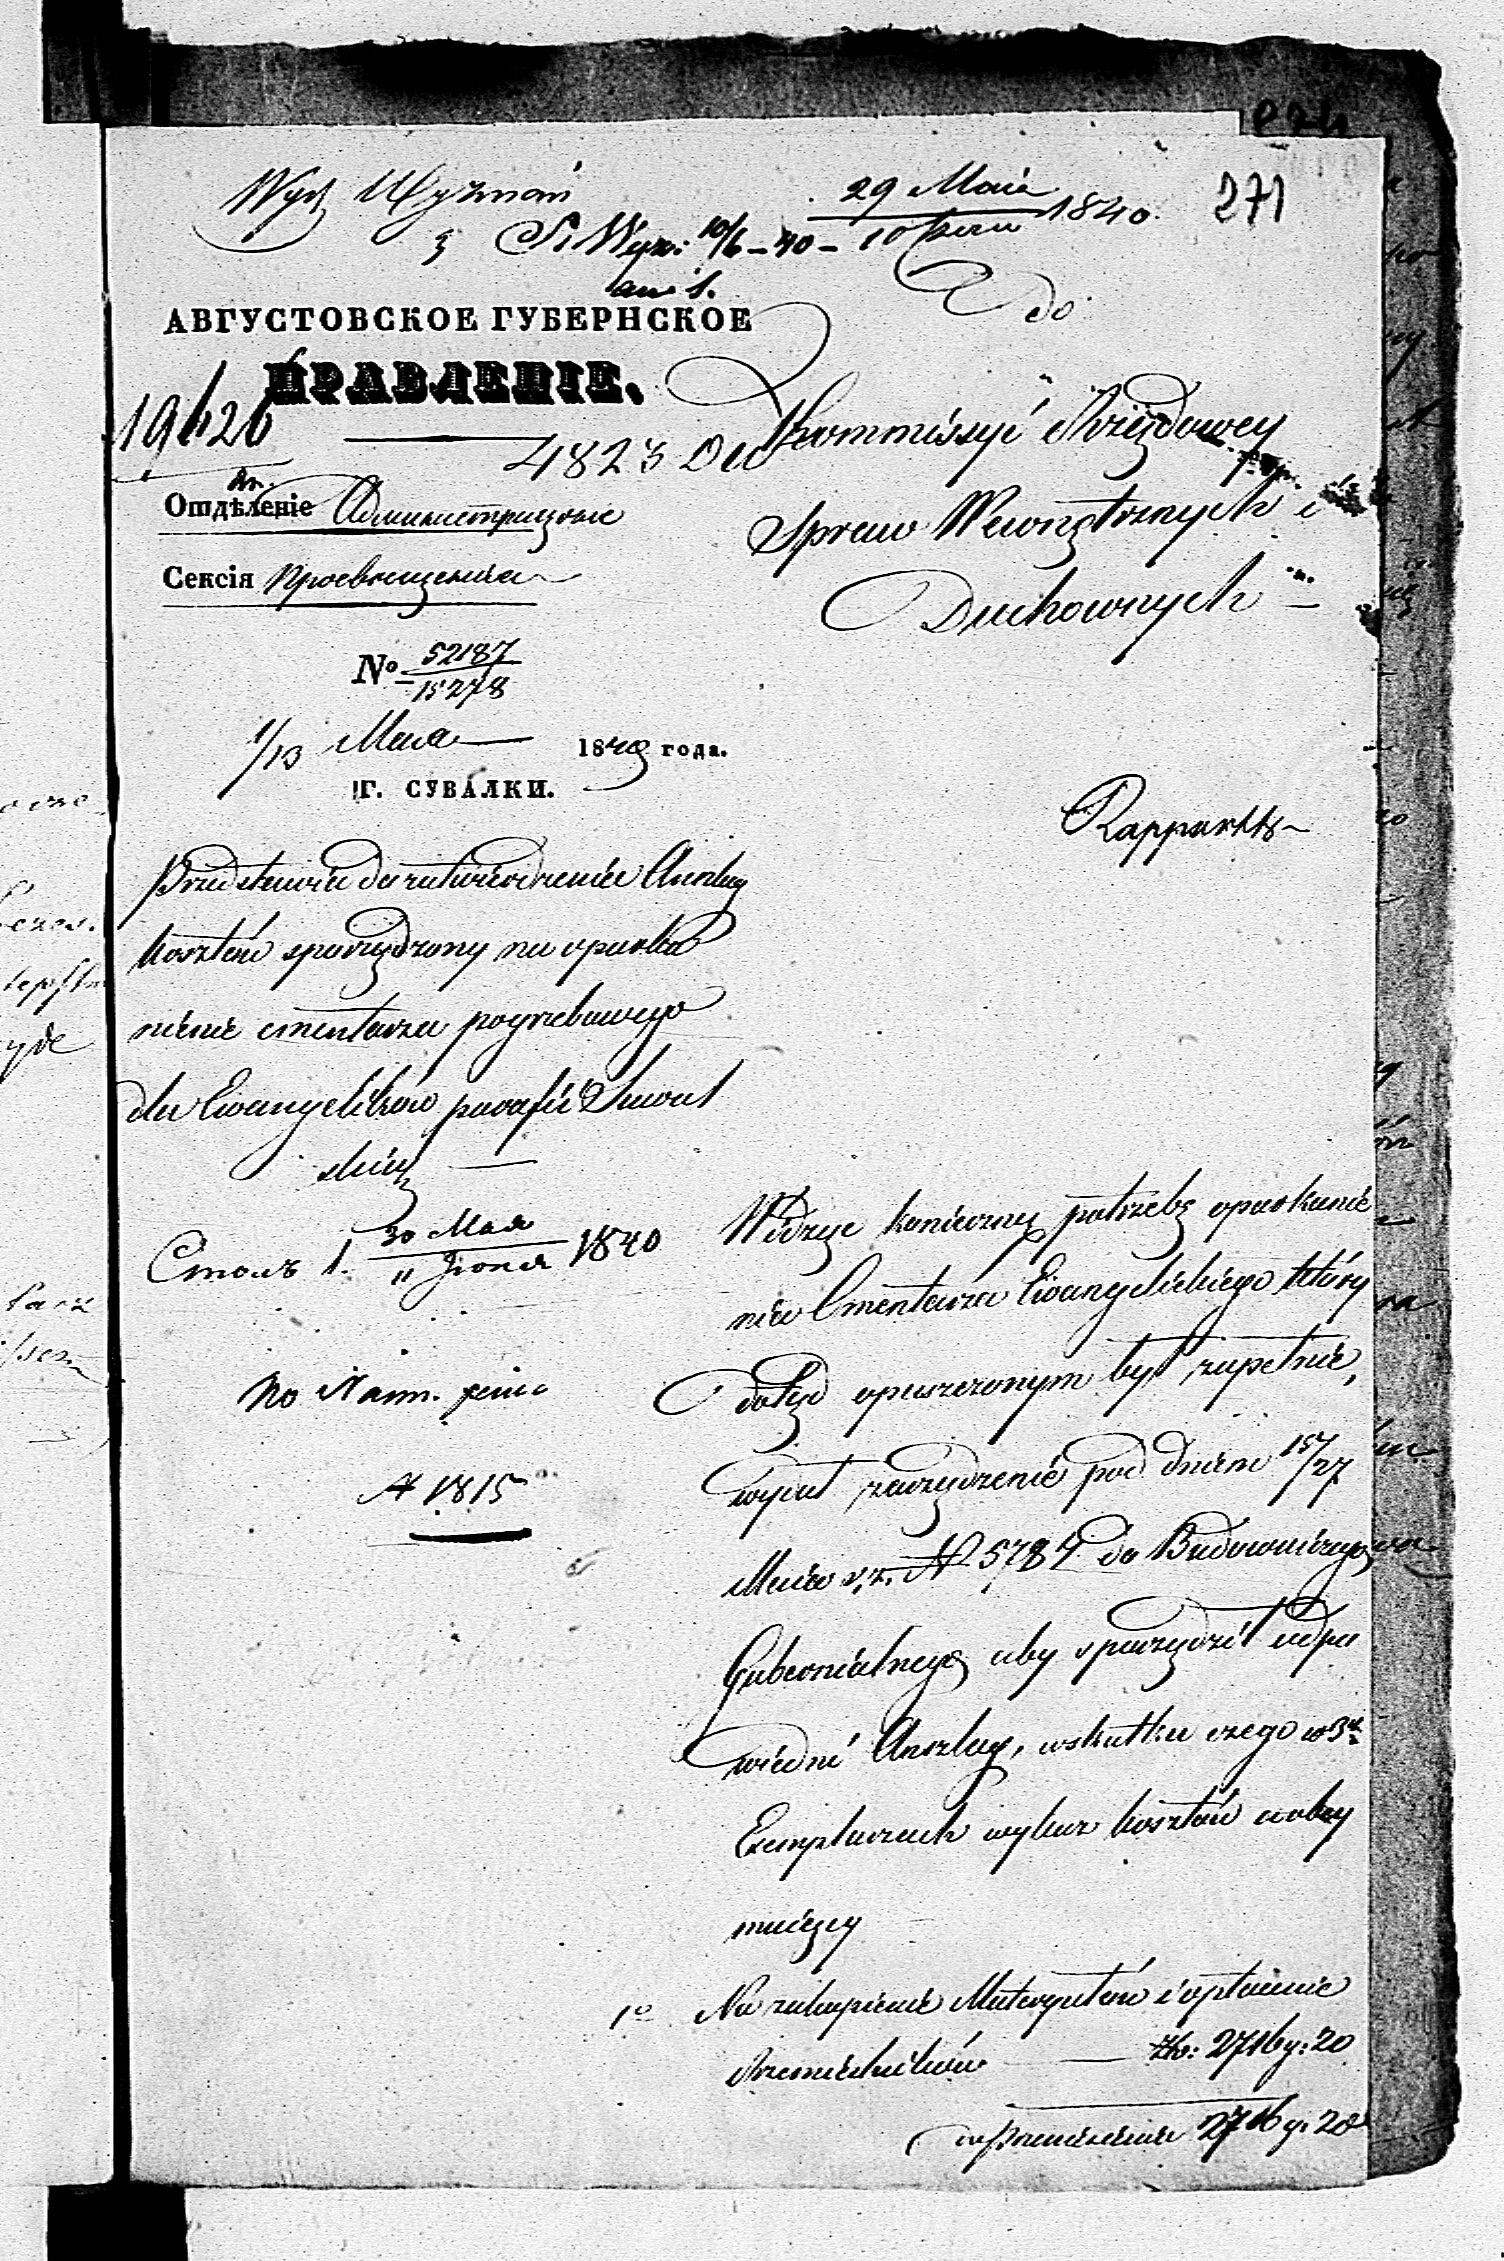 Wydz Wyznań
29 Maia
10 Czerw 1840.
271
10/6 - 40 -
do
АВГУСТОВСКОЕ ГУБЕРНСКОЕ
ПРАВЛЕНІЕ.
19626
4823
Kommissyi Rządowey
Spraw Wewnętrznych i
Duchownych
Отдѣленіе Административное
Сексія Просвещенія
№ 52187
15278
1/13 Мая 1840 года.
Г. СУВАЛКИ.
Rapport
Przedstawia do zatwierdzenia Anszlag
kosztów sporządzony na oparka
nienie cmentarza pogrzebowego
dla Ewangelików parafii Suwal
skiey
Столъ 1. 30 Мая
11 Іюня 1840
No
№ 1815
Widząc konieczną potrzebę oparkanie
nia Cmentarza Ewangelickiego który
dotąd opuszczonym był zupełnie,
wydał rozrządzenie pod dniem 15/27
Maia r. z. № 5787 do Budowniczego
Gubernialnego aby sporządził odpo
wiedni Anszlag, wskutku czego w 3ch
Exemplarzach wykaz kosztów a obey
muiący
1º Na zakupienie Materyałów i opłacenie
Rzemieślników — Złp: 2716 g: 20
do Przeniesienia 2716 g: 20